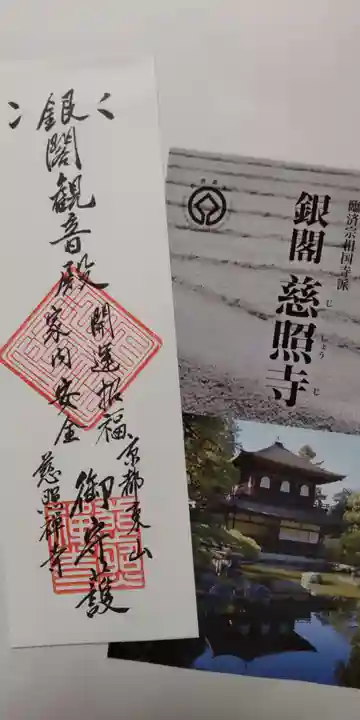 銀閣観音殿
御守護
開運招福
家内安全
京都東山
慈照禅寺
臨済宗相国寺派
銀閣 慈照寺
じ しょう じ